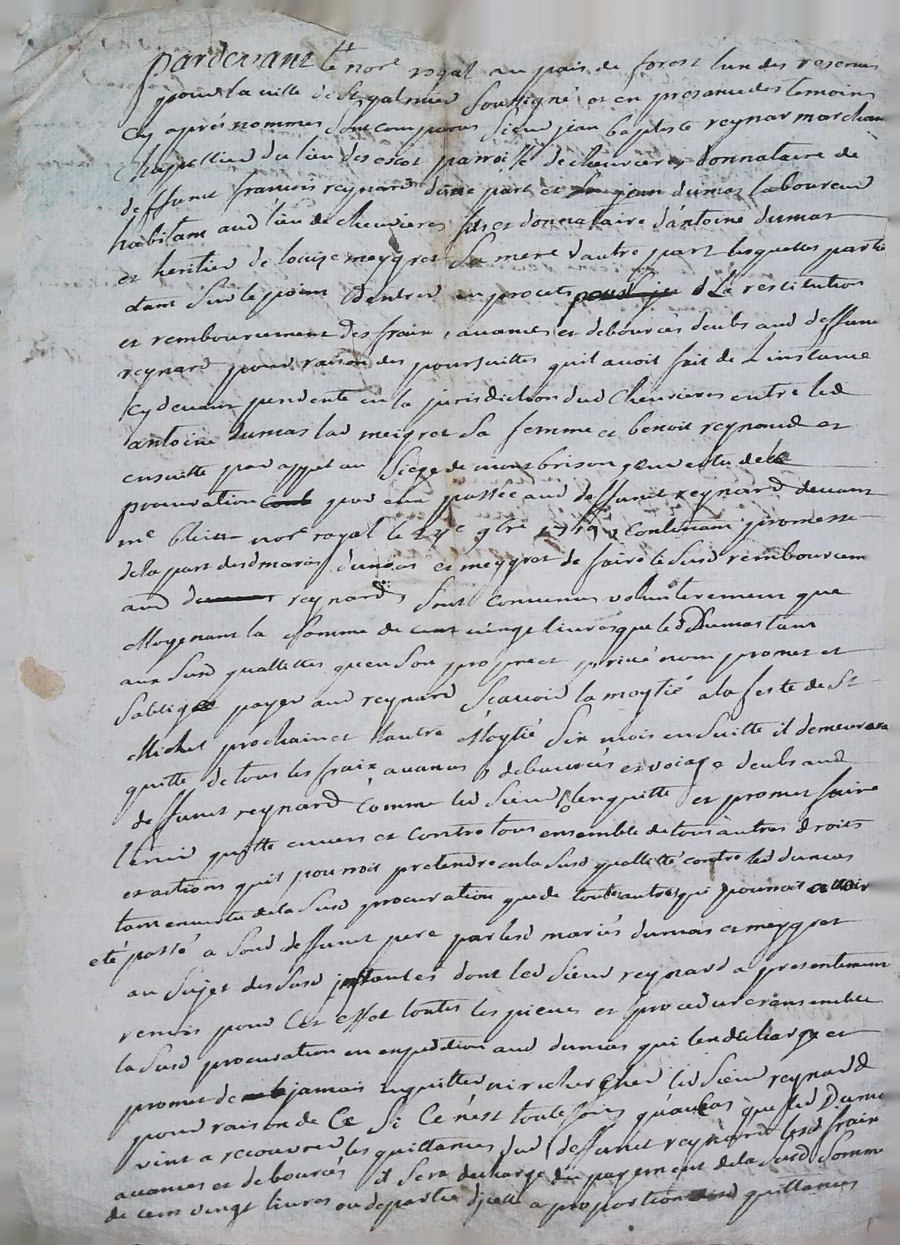 pardevant le nore royal au pais de forest lun des reservés
pour la ville de St galmier soussigné et en presance des temoins
cy aprés nommes sont comparus sieur jean baptiste reynard marchand
chapellier du lieu des escot parroisse de chevrieres donnataire de
deffunt francois reynard d'une part et jean dumas laboureur
habitant aud lieu de chevrieres fils et donnataire d'antoine dumas
et heritier de louise meygret sa mere d'autre part lesquelles partie
etant sur le point d'entrer en procets de la restitution
et remboursement des fraix, avances et debources deubs aud deffunt
reynard pour raison des poursuittes qu'il avoit fait de l'instance
cy devant pendente en la jurisdiction dud chevrieres entre led
antoine dumas lad meigret sa femme et benoit reynaud et
ensuitte par appel au siege de montbrison en vertu de la
procuration par eux passée aud deffunt reynard devant
me nore royal le contenant promesse
de la part desd mariés dumas et meygret de faire le susd remboursem
aud reynard, sont convenus volonterement que
moyenant la somme de cent vingt livres que led Dumas tant
aux susd quallittes qu'en son propre et privé nom promet et
s'oblige payer aud reynard scavoir la moytié a la feste de St
Michel prochain et l'autre moytié six mois ensuitte il demeurera
quitte de tous les fraix avances debourcés et voiage deubs aud
deffunt reynard comme led sieur l'en quitte et promet faire
tenir quitte envers et contre tous ensemble de tous autres droits
et actions qu'il pourroit pretendre en la susd quallitté contre led dumas
tant en vertu de la susd procuration que de toute autre qui pourroit avoir
eté passé a soud deffunt pere par lesd mariés dumas et meygret
au sujet des susd instances dont led sieur reynard a presentement
remis pour cet effet toutes les pieces et procedures ensemble
la susd procuration en expedition aud dumas qui l'en decharge et
promet de jamais inquitter ni rechercher led sieur reynard
pour raison de ce si ce n'est toutefois qu'au cas que led Dumas
vint a recouvrer les quittances dud deffunt reynard desd fraix
avances et debourcés il sera decharge du payement de la susd somme
de cent vingt livres ou de partie d'jcelle a proportion desd quittances